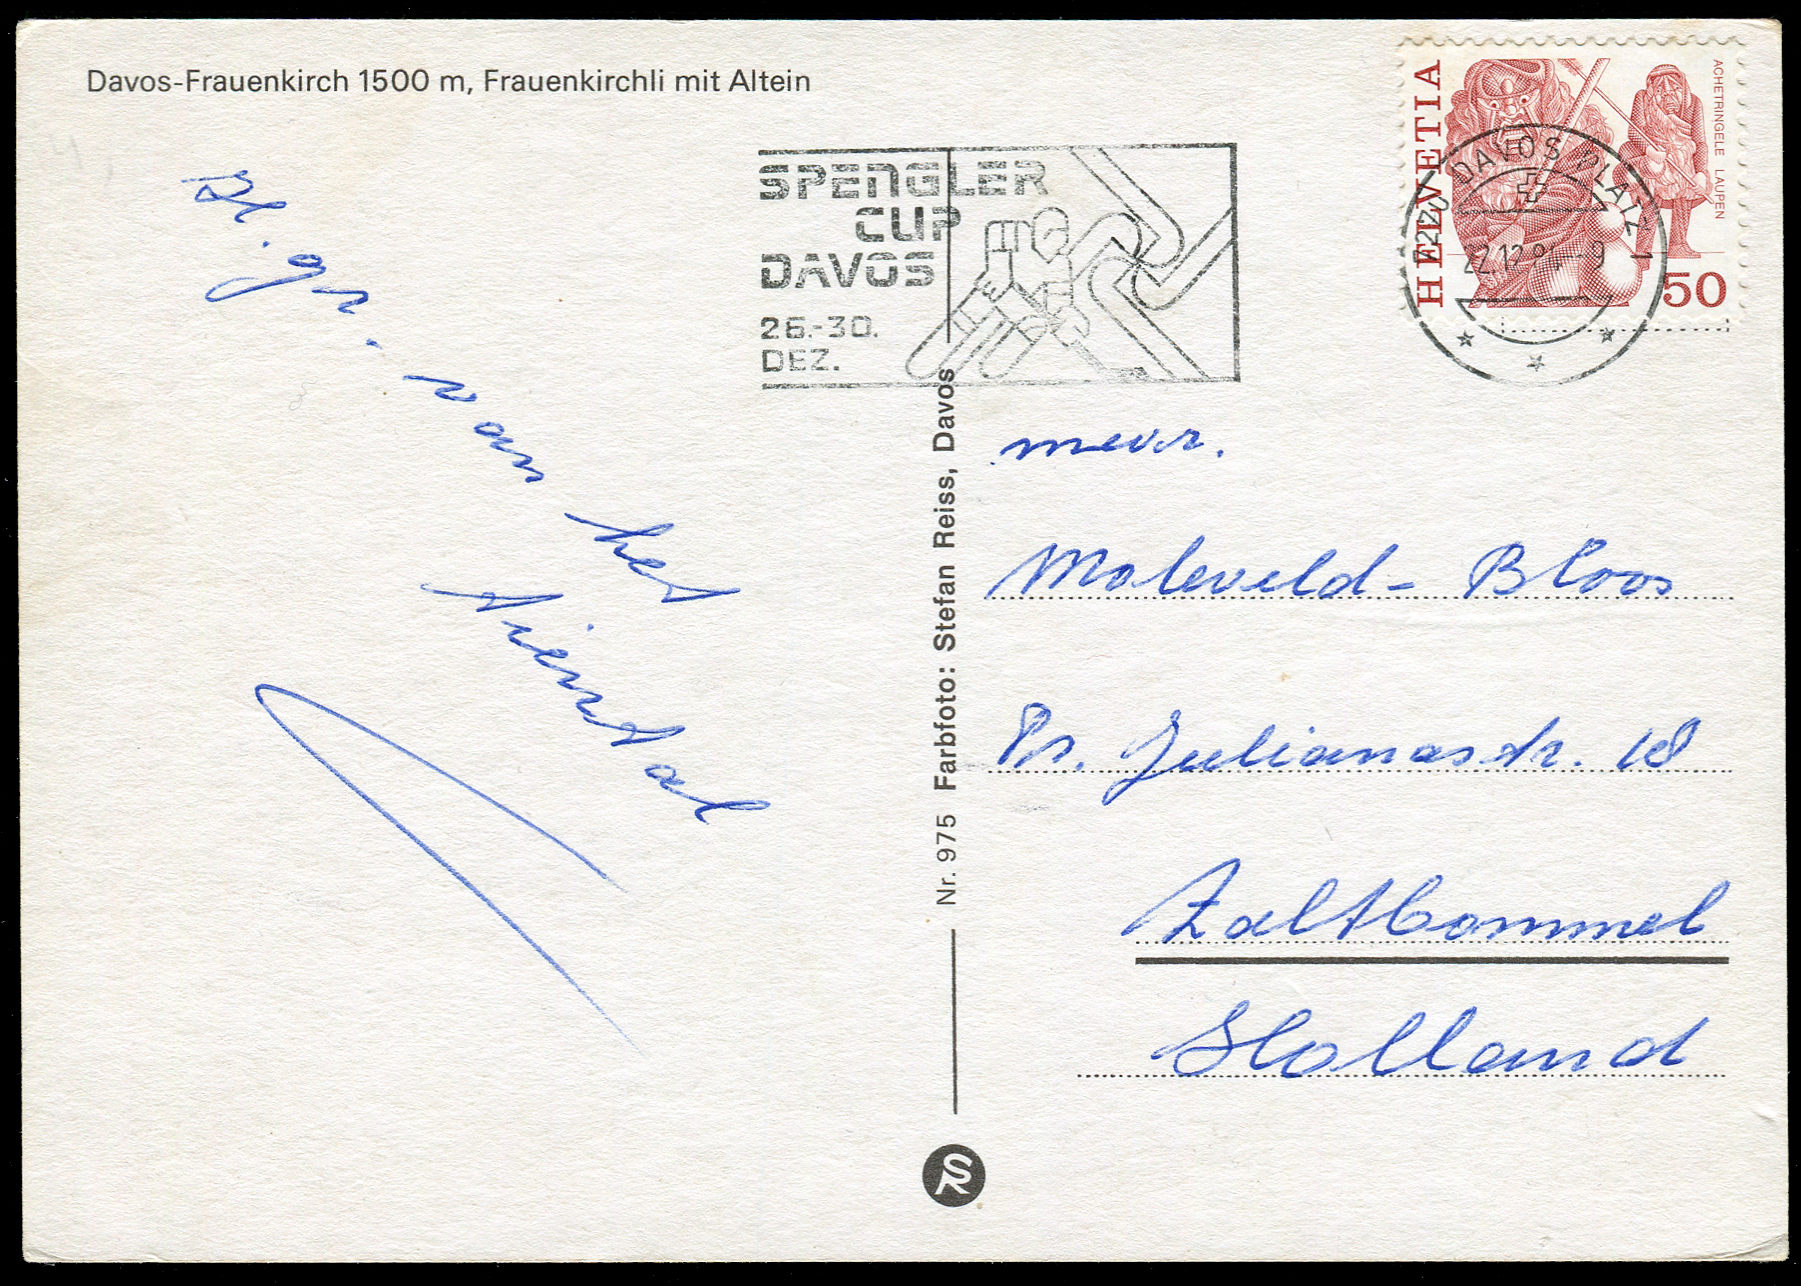 Davos-Frauenkirch 1500 m, Frauenkirchli mit Altein
HELVETIA
ACHETRINGELE LAUPEN
50
DAVOS PLATZ 1
22.12.81-9
SPENGLER
CUP
DAVOS
26.-30.
DEZ.
H. gr.
van het
tiental
Nr. 975 Farbfoto: Stefan Reiss, Davos
mevr.
Moleveld - Bloos
Pr. Julianastr. 18
Zaltbommel
Holland
SR